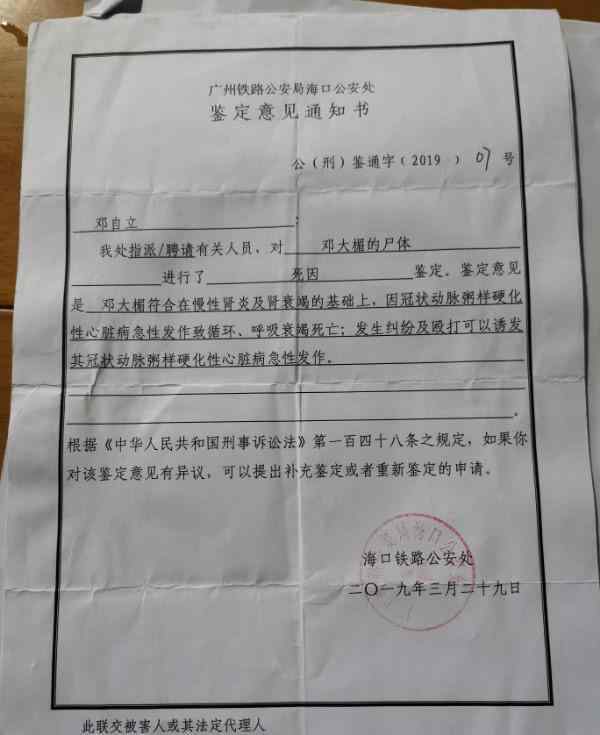 广州铁路公安局海口公安处
鉴定意见通知书
公（刑）鉴通字（2019）07号
邓自立：
我处指派/聘请有关人员，对 邓大楣的尸体
进行了 死因 鉴定。鉴定意见
是 邓大楣符合在慢性肾炎及肾衰竭的基础上，因冠状动脉粥样硬化
性心脏病急性发作致循环、呼吸衰竭死亡；发生纠纷及殴打可以诱发
其冠状动脉粥样硬化性心脏病急性发作。
。
根据《中华人民共和国刑事诉讼法》第一百四十八条之规定，如果你
对该鉴定意见有异议，可以提出补充鉴定或者重新鉴定的申请。
海口铁路公安处
二〇一九年三月二十九日
此联交被害人或其法定代理人